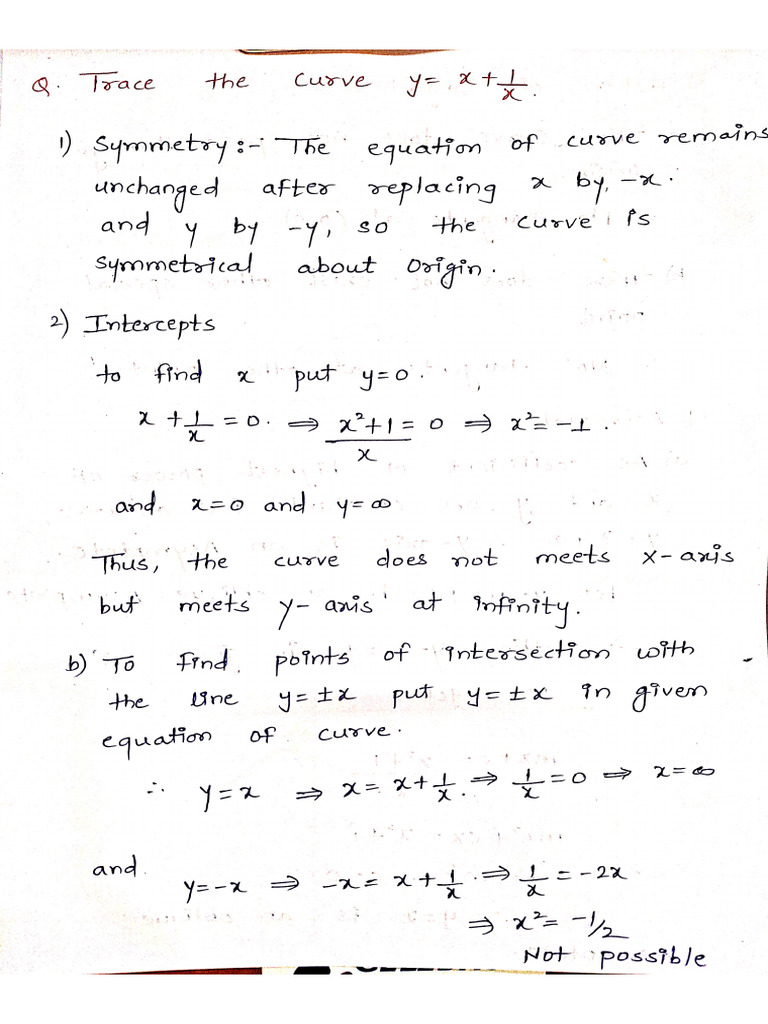 Q. Trace the curve y = x + 1/x.
1) Symmetry :- The equation of curve remains
unchanged after replacing x by -x.
and y by -y, so the curve is
symmetrical about origin.
2) Intercepts
to find x put y=0.
x + 1/x = 0. ⇒ (x²+1)/x = 0 ⇒ x² = -1.
and x=0 and y=∞
Thus, the curve does not meets x-axis
but meets y-axis at infinity.
b) To find points of intersection with
the line y=±x put y=±x in given
equation of curve.
∴ y=x ⇒ x = x + 1/x. ⇒ 1/x = 0 ⇒ x=∞
and y=-x ⇒ -x = x + 1/x ⇒ 1/x = -2x
⇒ x² = -1/2
Not possible